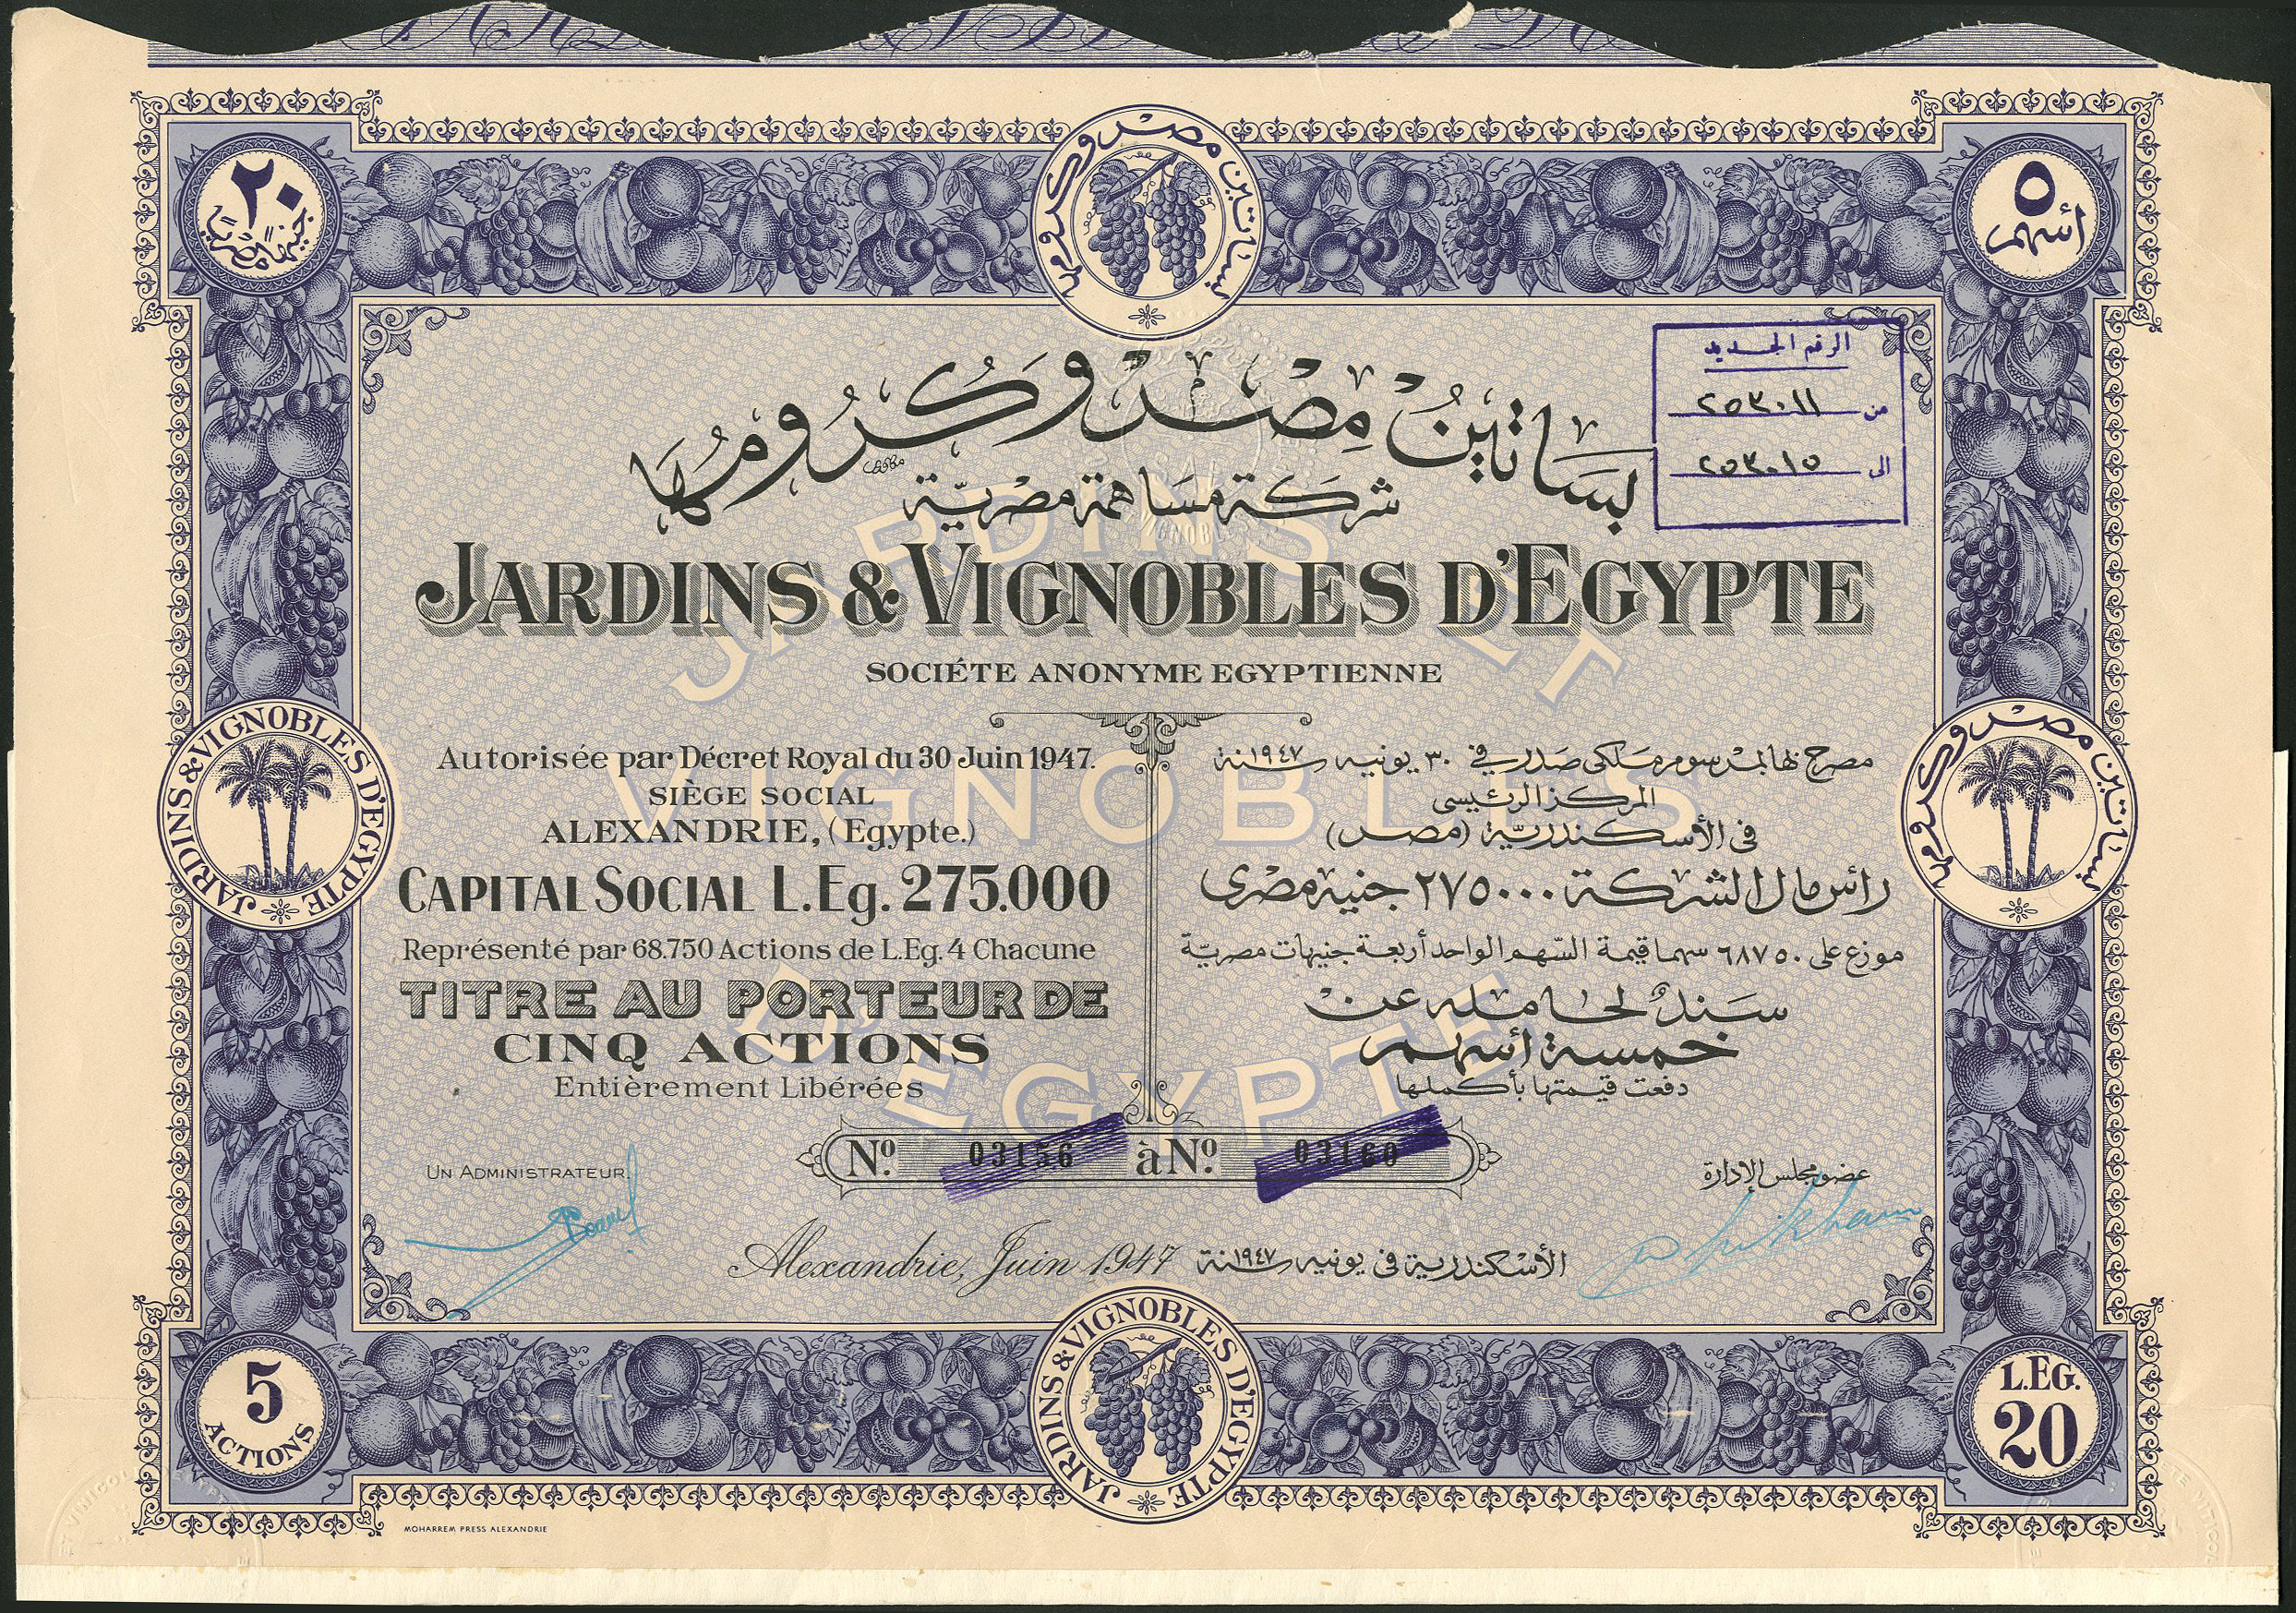 ٢٠
جنيهًا مصريًا
بساتين مصر وكرومها
٥
أسهم
الرقم الجديد
من ٢٥٣٠١١
الى ٢٥٣٠١٥
بساتين مصر وكرومها
شركة مساهمة مصرية
JARDINS & VIGNOBLES D'EGYPTE
SOCIÉTE ANONYME EGYPTIENNE
JARDINS ET
VIGNOBLES
D'EGYPTE
JARDINS & VIGNOBLES D'EGYPTE
Autorisée par Décret Royal du 30 Juin 1947.
SIÈGE SOCIAL
ALEXANDRIE, (Egypte.)
CAPITAL SOCIAL L.Eg. 275.000
Représenté par 68.750 Actions de L.Eg. 4 Chacune
TITRE AU PORTEUR DE
CINQ ACTIONS
Entièrement Libérées
مصرح لها بمرسوم ملكى صدر في ٣٠ يونيه سنة ١٩٤٧
المركز الرئيسى
فى الأسكندرية (مصر)
رأس مال الشركة ٢٧٥٠٠٠ جنيه مصرى
موزع على ٦٨٧٥٠ سهما قيمة السهم الواحد أربعة جنيهات مصرية
سند لحامله عن
خمسة أسهم
دفعت قيمتها بأكملها
بساتين مصر وكرومها
Nº. 03156 à Nº. 03160
UN ADMINISTRATEUR.
عضو مجلس الإدارة
Alexandrie, Juin 1947
الأسكندرية فى يونيه سنة ١٩٤٧
5
ACTIONS
JARDINS & VIGNOBLES D'EGYPTE
L.EG.
20
MOHARREM PRESS ALEXANDRIE